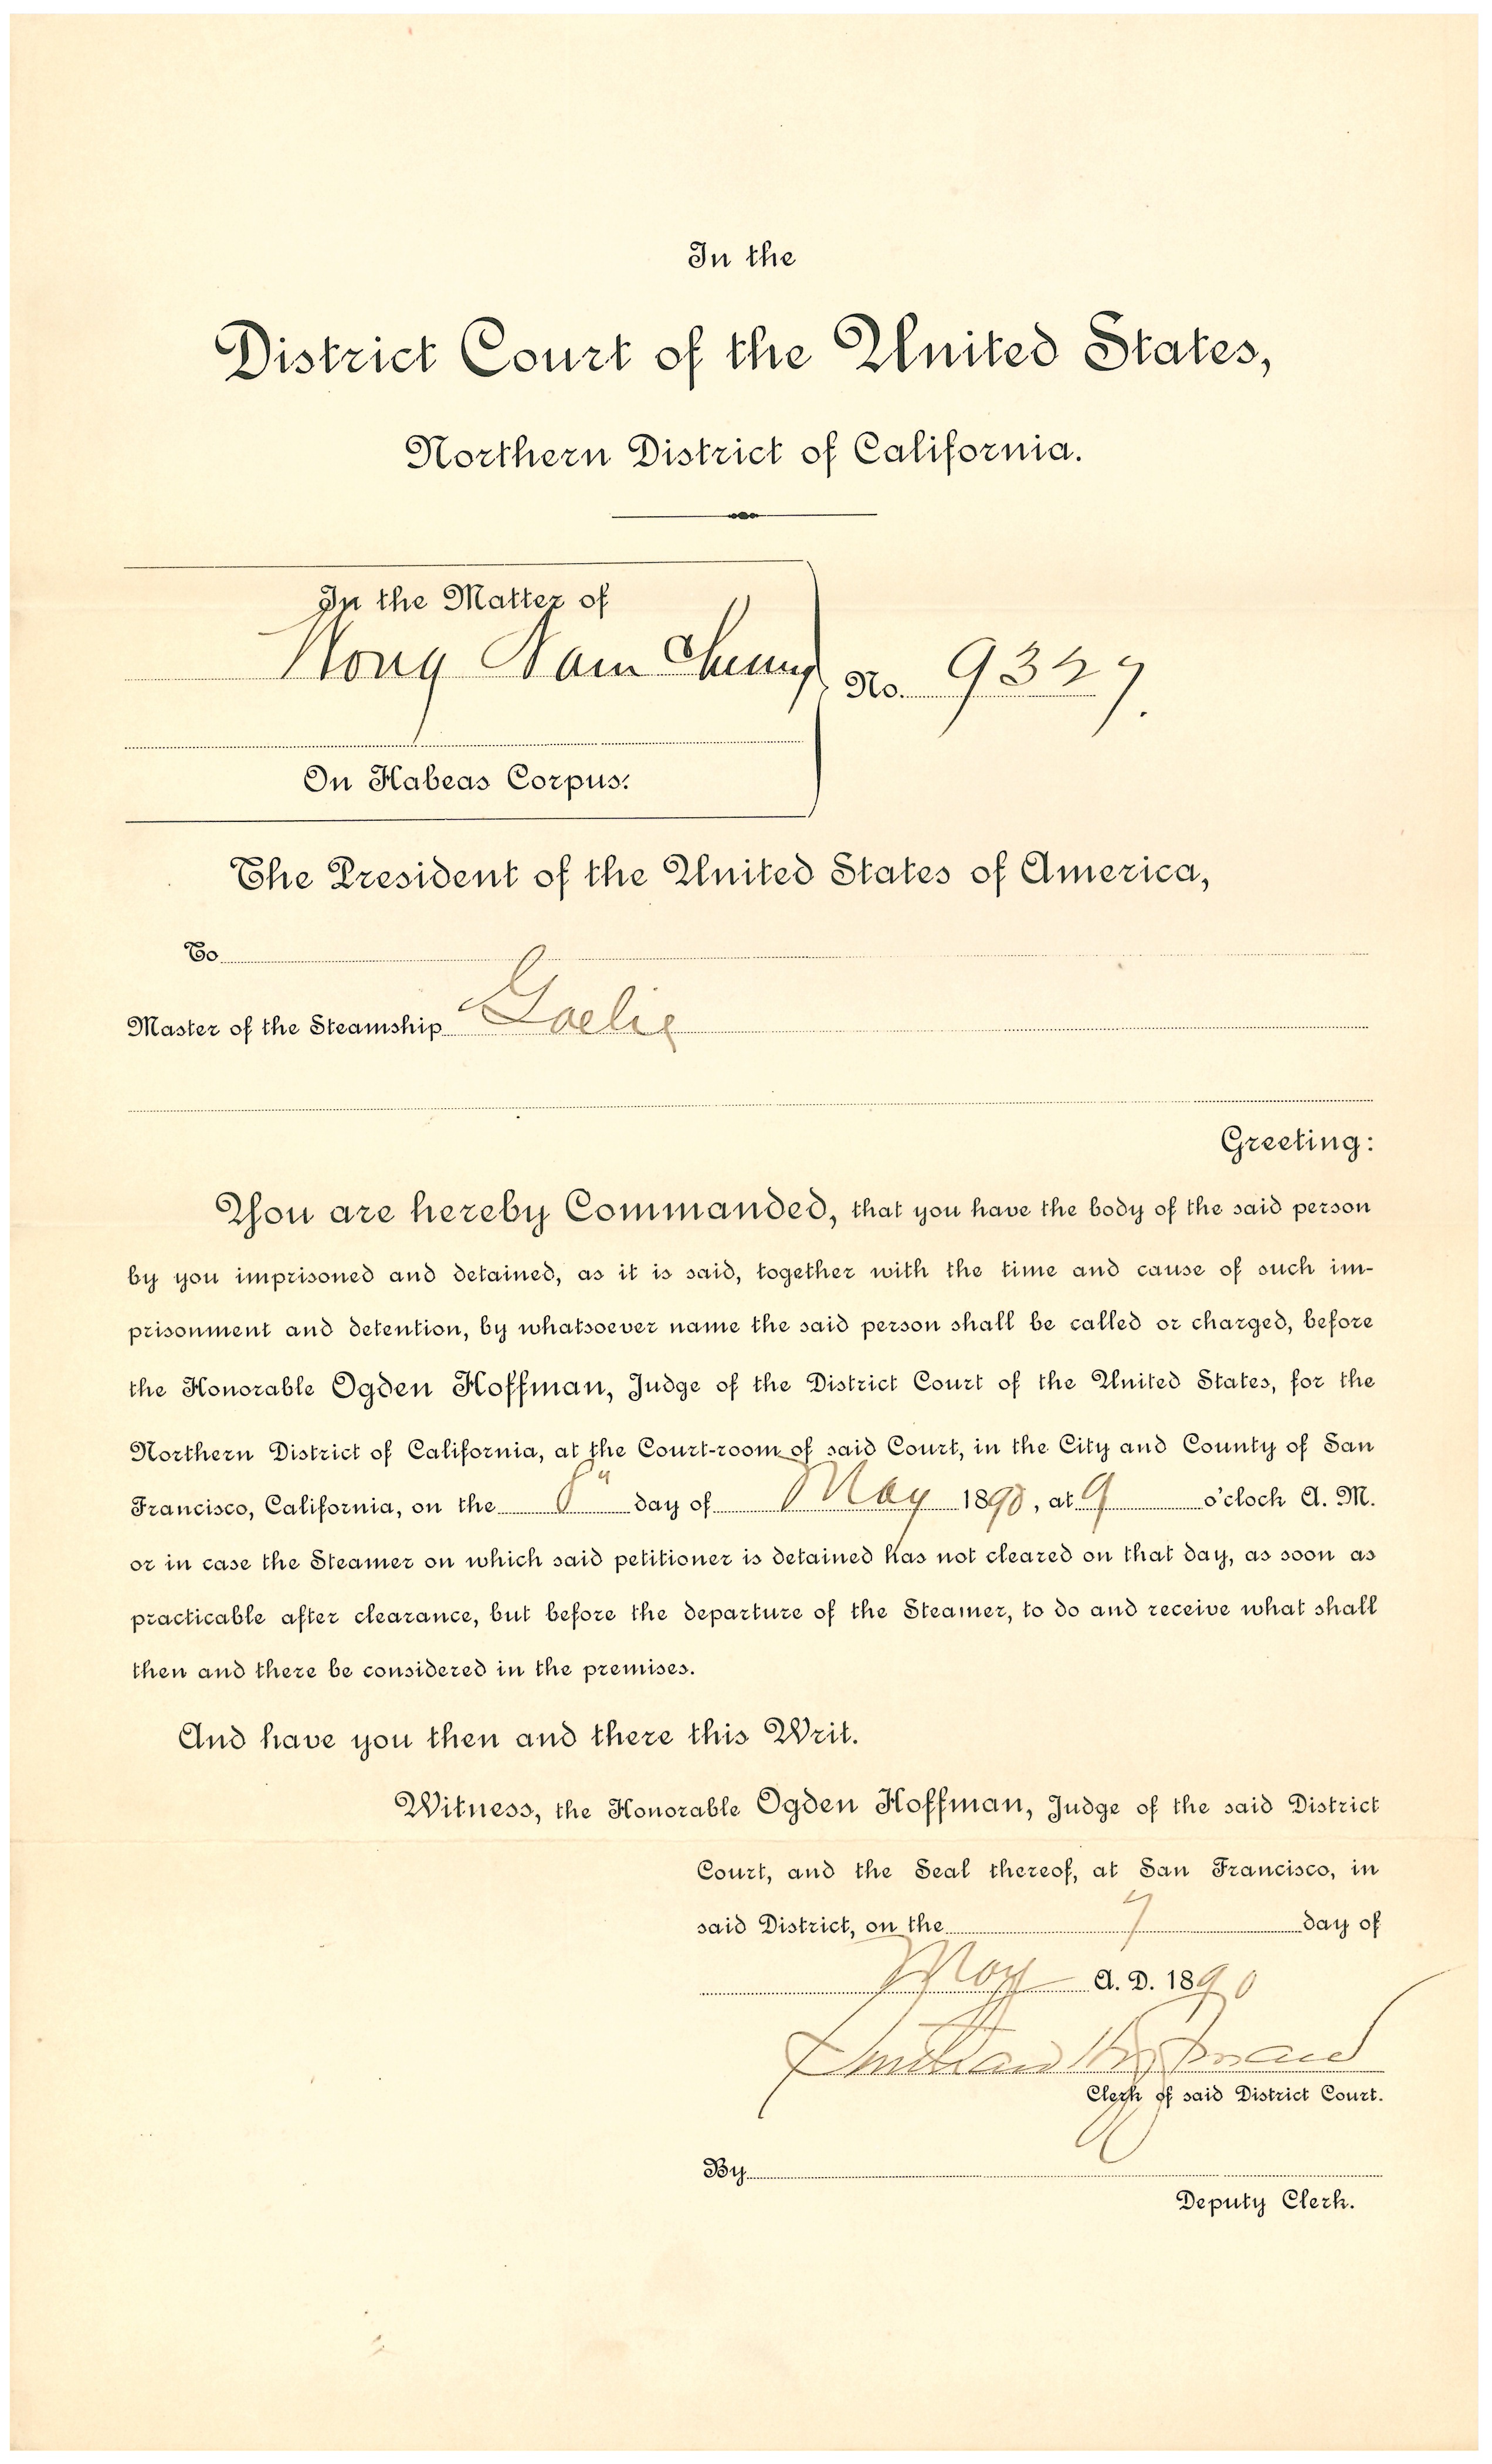 In the
District Court of the United States,
Northern District of California.
In the Matter of
Wong Nam Chung
No. 9327.
On Habeas Corpus.
The President of the United States of America,
To
Master of the Steamship Gaelic
Greeting:
You are hereby Commanded, that you have the body of the said person
by you imprisoned and detained, as it is said, together with the time and cause of such im-
prisonment and detention, by whatsoever name the said person shall be called or charged, before
the Honorable Ogden Hoffman, Judge of the District Court of the United States, for the
Northern District of California, at the Court-room of said Court, in the City and County of San
Francisco, California, on the 8" day of May 1890, at 9 o'clock A. M.
or in case the Steamer on which said petitioner is detained has not cleared on that day, as soon as
practicable after clearance, but before the departure of the Steamer, to do and receive what shall
then and there be considered in the premises.
And have you then and there this Writ.
Witness, the Honorable Ogden Hoffman, Judge of the said District
Court, and the Seal thereof, at San Francisco, in
said District, on the 7 day of
May A. D. 1890
Clerk of said District Court.
By
Deputy Clerk.